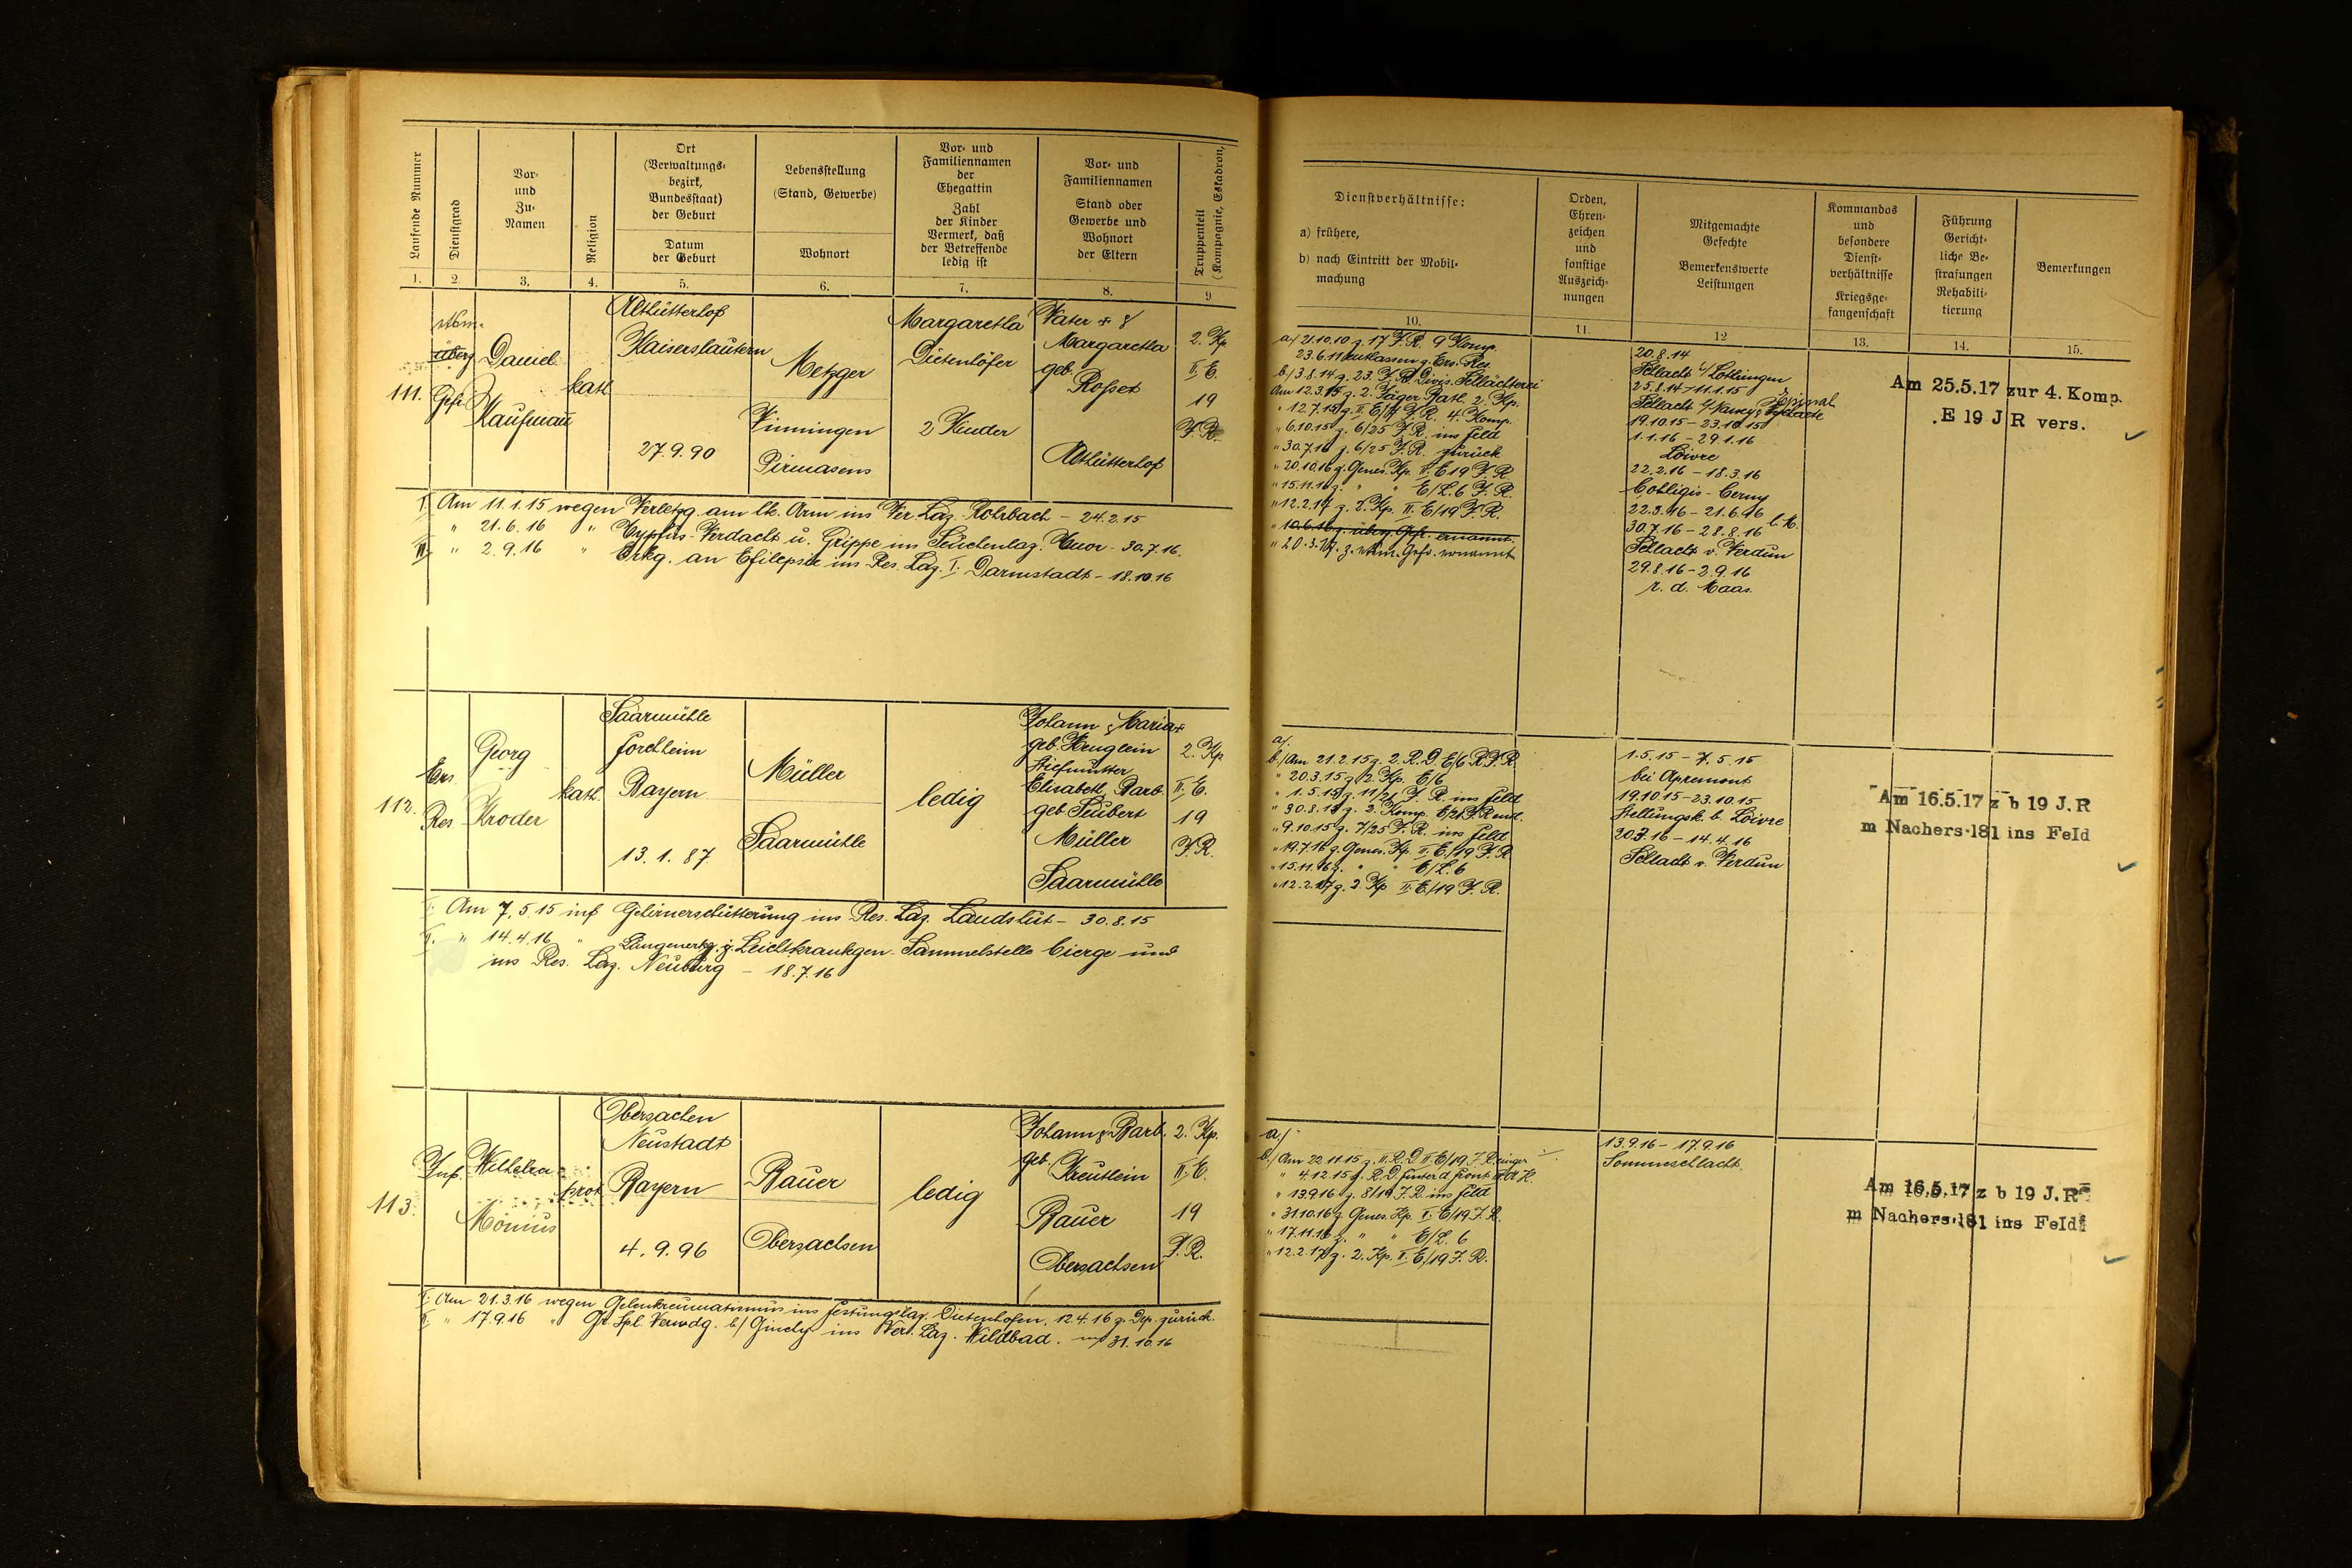 Laufende Nummer
Dienstgrad
Vor-
und
Zu-
Namen
Religion
Ort
(Verwaltungs-
bezirk,
Bundesstaat)
der Geburt
Datum
der Geburt
Lebensstellung
(Stand, Gewerbe)
Wohnort
Vor- und
Familiennamen
der
Ehegattin
Zahl
der Kinder
Vermerk, daß
der Betreffende
ledig ist
Vor- und
Familiennamen
Stand oder
Gewerbe und
Wohnort
der Eltern
Truppenteil
(Kompagnie, Eskadron,
1. 2. 3. 4. 5. 6. 7. 8. 9
111.
überz.
Gefr.
Daniel
Kaufmann
kath.
Althütterhof
Kaiserslautern
27.9.90
Metzger
Vinningen
Pirmasens
Margaretha
Dietenhöfer
2 Kinder
Vater +
Margaretha
geb.
Althütterhof
2. Kp
II. E.
19
J.R.
I. Am 11.1.15 wegen Verletzg. am lk. Arm ins Ver. Laz. Rohrbach - 24.2.15
" 21.6.16 " Typhus-Verdacht u. Grippe im Seuchenlaz. - 30.7.16.
III. " 2.9.16 " Erkg. an Epilepsie ins Res. Laz. I. Darmstadt - 18.10.16
112.
Ers.
Res.
Georg
Kroder
kath.
Saarmühle
Forchheim
Bayern
13.1.87
Müller
Saarmühle
ledig
Johann & Maria +
geb. Heuglein
Stiefmutter
Elisabeth Barb.
geb. Seubert
Müller
Saarmühle
2. Kp
II. E.
19
J.R.
I. Am 7.5.15 inf. Gehirnerschütterung ins Res. Laz. Landshut - 30.8.15
II. " 14.4.16 " Lungenerkg. z. Leichtkranken-Sammelstelle Cierge und
ins Res. Laz. Neuburg - 18.7.16
113.
Inf.
Wilhelm
Mönius
prot.
Obersachen
Neustadt
Bayern
4.9.96
Bauer
Obersachsen
ledig
Johann & Barb.
geb.
Kreutlein
Bauer
Obersachsen
2. Kp.
II. E.
19
J.R.
I. Am 21.3.16 wegen Gelenkreumatismus ins Festungslaz. Dietenhofen, 12.4.16 z. Dep. zurück.
II. " 17.9.16 " Gr. Spl. Verwdg. b/ Ginchy ins Ver. Laz. Wildbad. 31.10.16
Dienstverhältnisse:
a) frühere,
b) nach Eintritt der Mobil-
machung
Orden,
Ehren-
zeichen
und
sonstige
Auszeich-
nungen
Mitgemachte
Gefechte
Bemerkenswerte
Leistungen
Kommandos
und
besondere
Dienst-
verhältnisse
Kriegsge-
fangenschaft
Führung
Gericht-
liche Be-
strafungen
Rehabili-
tierung
Bemerkungen
10. 11. 12 13. 14. 15.
a/ 21.10.10 z. 17 J.R. 9 Komp.
23.6.11 entlassen z. Ers. Res.
b/ 3.8.14 z. 23. J.R. Divis. Schlächterei
Am 12.3.15 z. 2. Jäger Batl. 2. Kp.
" 12.7.15 z. II. E/ J.R. 4. Komp.
" 6.10.15 z. 6/25 J.R. ins Feld
" 30.7.16 z. 6/25 J.R. zurück
" 20.10.16 z. Genes. Kp. II. E 19 J.R.
" 15.11.16 z. " " E/L. 6 J.R.
" 12.2.17 z. 2. Kp. II. E/19 J.R.
" 10.6.16 z. überz. Gefr. ernannt.
" 20.3.17. z. Gefr. ernannt
20.8.14
Schlacht i/ Lothringen
25.8.14 - 11.1.15
Schlacht b/ Nancy Epinal
19.10.15 - 23.10.15
1.1.16 - 29.1.16
Loivre
22.2.16 - 18.3.16
Corbligis - Cerny
22.3.16 - 21.6.16
30.7.16 - 28.8.16
Schlacht v. Verdun
29.8.16 - 2.9.16
r. d. Maas.
Am 25.5.17 zur 4. Komp.
.E 19 J R vers.
a/.
b./ Am 21.2.15 z. 2. R.D. E/6 R.J.R.
" 20.3.15 z. 2. Kp. E/6
" 1.5.15 z. 11/ J.R. ins Feld
" 30.8.15 z. 2. Komp. E/21.J.R.
" 9.10.15 z. 7/25 J.R. ins Feld
" 19.7.16 z. Genes. Kp. II. E/19 J.R.
" 15.11.16 z. " " E/L. 6
" 12.2.17 z. 2. Kp. II. E/19 J.R.
1.5.15 - 7.5.15
bei Apremont
19.10.15 - 23.10.15
Stellungsk. b. Loivre
20.3.16 - 14.4.16
Schlacht v. Verdun
Am 16.5.17 z b 19 J.R
m Nachers.181 ins Feld
a./
b./ Am 22.11.15 z. II. R.D. II. E/19 J.R.
" 4.12.15 z. R.D. hinter d. Front
" 13.9.16 z. 8/19 J.R. ins Feld
" 31.10.16 z. Genes. Kp. I. E/19 J.R.
" 17.11.16 z. " " E/L. 6
" 12.2.17 z. 2. Kp. II. E/19 J.R.
13.9.16 - 17.9.16
Sommeschlacht.
Am 16.5.17 z b 19 J.R
m Nachers.181 ins Feld